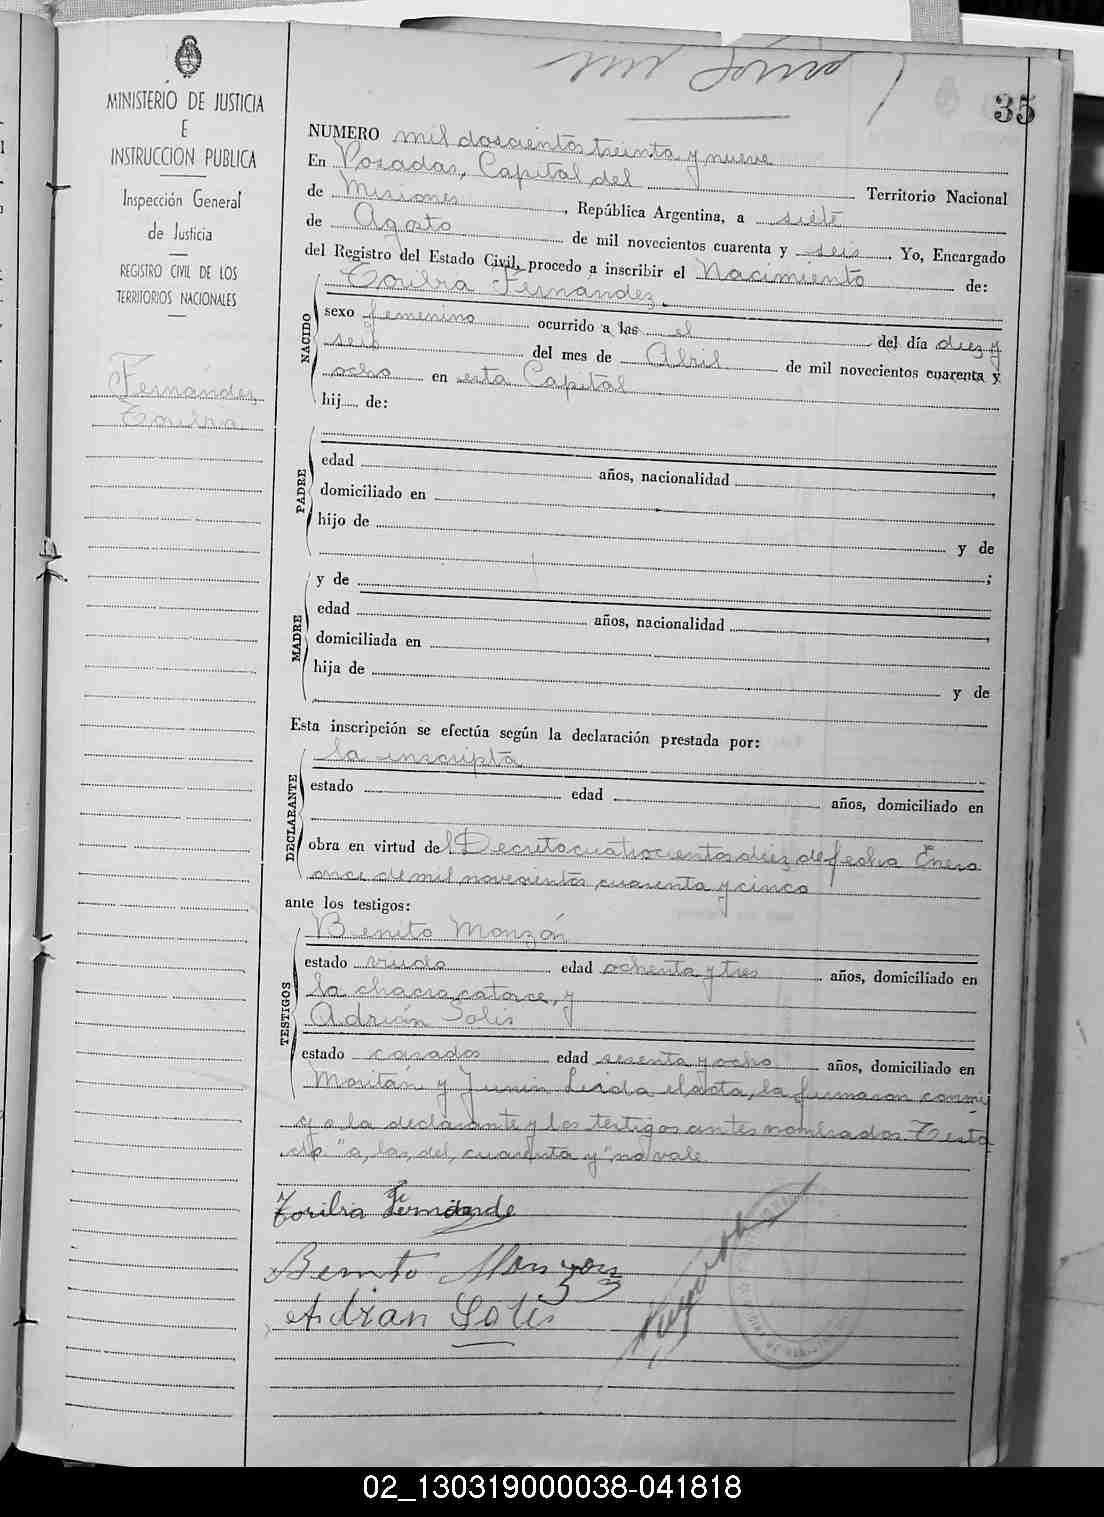 35
MINISTERIO DE JUSTICIA
E
INSTRUCCION PUBLICA
Inspección General
de Justicia
REGISTRO CIVIL DE LOS
TERRITORIOS NACIONALES
Fernández
Toribia
NUMERO mil doscientos treinta y nueve
En Posadas, Capital del Territorio Nacional
de Misiones, República Argentina, a siete
de Agosto de mil novecientos cuarenta y seis Yo, Encargado
del Registro del Estado Civil, procedo a inscribir el Nacimiento de:
NACIDO
Toribia Fernández.
sexo femenino ocurrido a las el del día diez y
seis del mes de Abril de mil novecientos cuarenta y
ocho en esta Capital
hij de:
PADRE
edad años, nacionalidad ,
domiciliado en
hijo de y de
;
MADRE
y de
edad años, nacionalidad ,
domiciliada en
hija de y de
Esta inscripción se efectúa según la declaración prestada por:
DECLARANTE
la inscripta
estado edad años, domiciliado en
obra en virtud del Decreto cuatrocientos diez de fecha Enero
once de mil novecientos cuarenta y cinco
ante los testigos:
TESTIGOS
Benito Monzón
estado viudo edad ochenta y tres años, domiciliado en
la chacra catorce, y
Adrián Solis
estado casado edad sesenta y ocho años, domiciliado en
y Junin Leida el acta, la firmaron conmi
go la declarante y los testigos antes nombrados. Testa
do "a, las, del, cuarenta y" no vale
Toribia Fernande
Benito Monzon
Adrian Solis
02_130319000038-041818